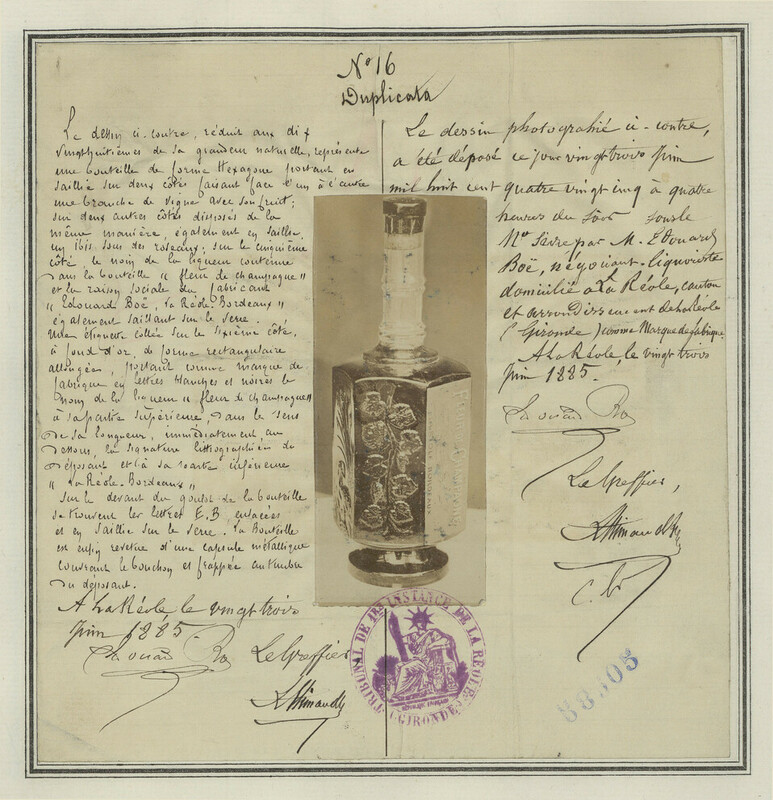 No 16
Duplicata
Le dessin ci-contre, réduit aux dix
vingthuitièmes de sa grandeur naturelle, représente
une bouteille de forme Hexagone portant en
saillie sur deux côtés faisant face l'un à l'autre
une branche de vigne avec son fruit;
sur deux autres côtés disposés de la
même manière, également en saillie,
un ibis sous des roseaux; sur le cinquième
côté, le nom de la liqueur contenue
dans la bouteille "fleur de champagne"
et la raison sociale du fabricant
"Edouard Boë, La Réole-Bordeaux"
également saillant sur le verre.
Une étiquette collée sur le sixième côté,
à fond d'or, de forme rectangulaire
allongée, portant comme marque de
fabrique en lettres blanches et noires le
nom de la liqueur "fleur de champagne"
à sa partie supérieure, dans le sens
de sa longueur, immédiatement au
dessous, la signature lithographiée du
déposant et à sa partie inférieure
"La Réole-Bordeaux"
Sur le devant du goulot de la bouteille
se trouvent les lettres E.B enlacées
et en saillie sur le verre. La Bouteille
est enfin revêtue d'une capsule métallique
couvrant le bouchon et frappée au timbre
du déposant.
A La Réole le vingt trois
Juin 1885.
Edouard Boë
Le Greffier
Le dessin photograhié ci-contre,
a été déposé ce jour vingt trois Juin
mil huit cent quatre vingt cinq a quatre
heures du Soir sous le
No Seize par M. Edouard
Boë, négociant-liquoriste
domicilié a La Réole, canton
et arrondissement de La Réole
(Gironde) comme Marque de fabrique.
A La Réole, le vingt trois
Juin 1885.
Edouard Boë
Le Greffier,
TRIBUNAL DE 1RE INSTANCE DE LA RÉOLE
(GIRONDE)
RÉPUBLIQUE FRANÇAISE
88305